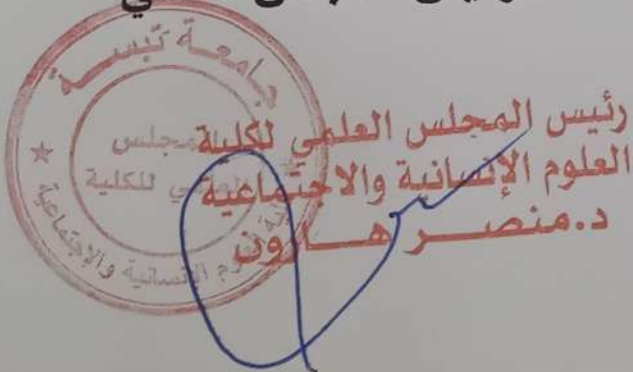 جامعة تبسة
المجلس
العلمي للكلية
العلوم الإنسانية والإجتماعية
رئيس المجلس العلمي لكلية
العلوم الإنسانية والاجتماعية
د.منصر هارون